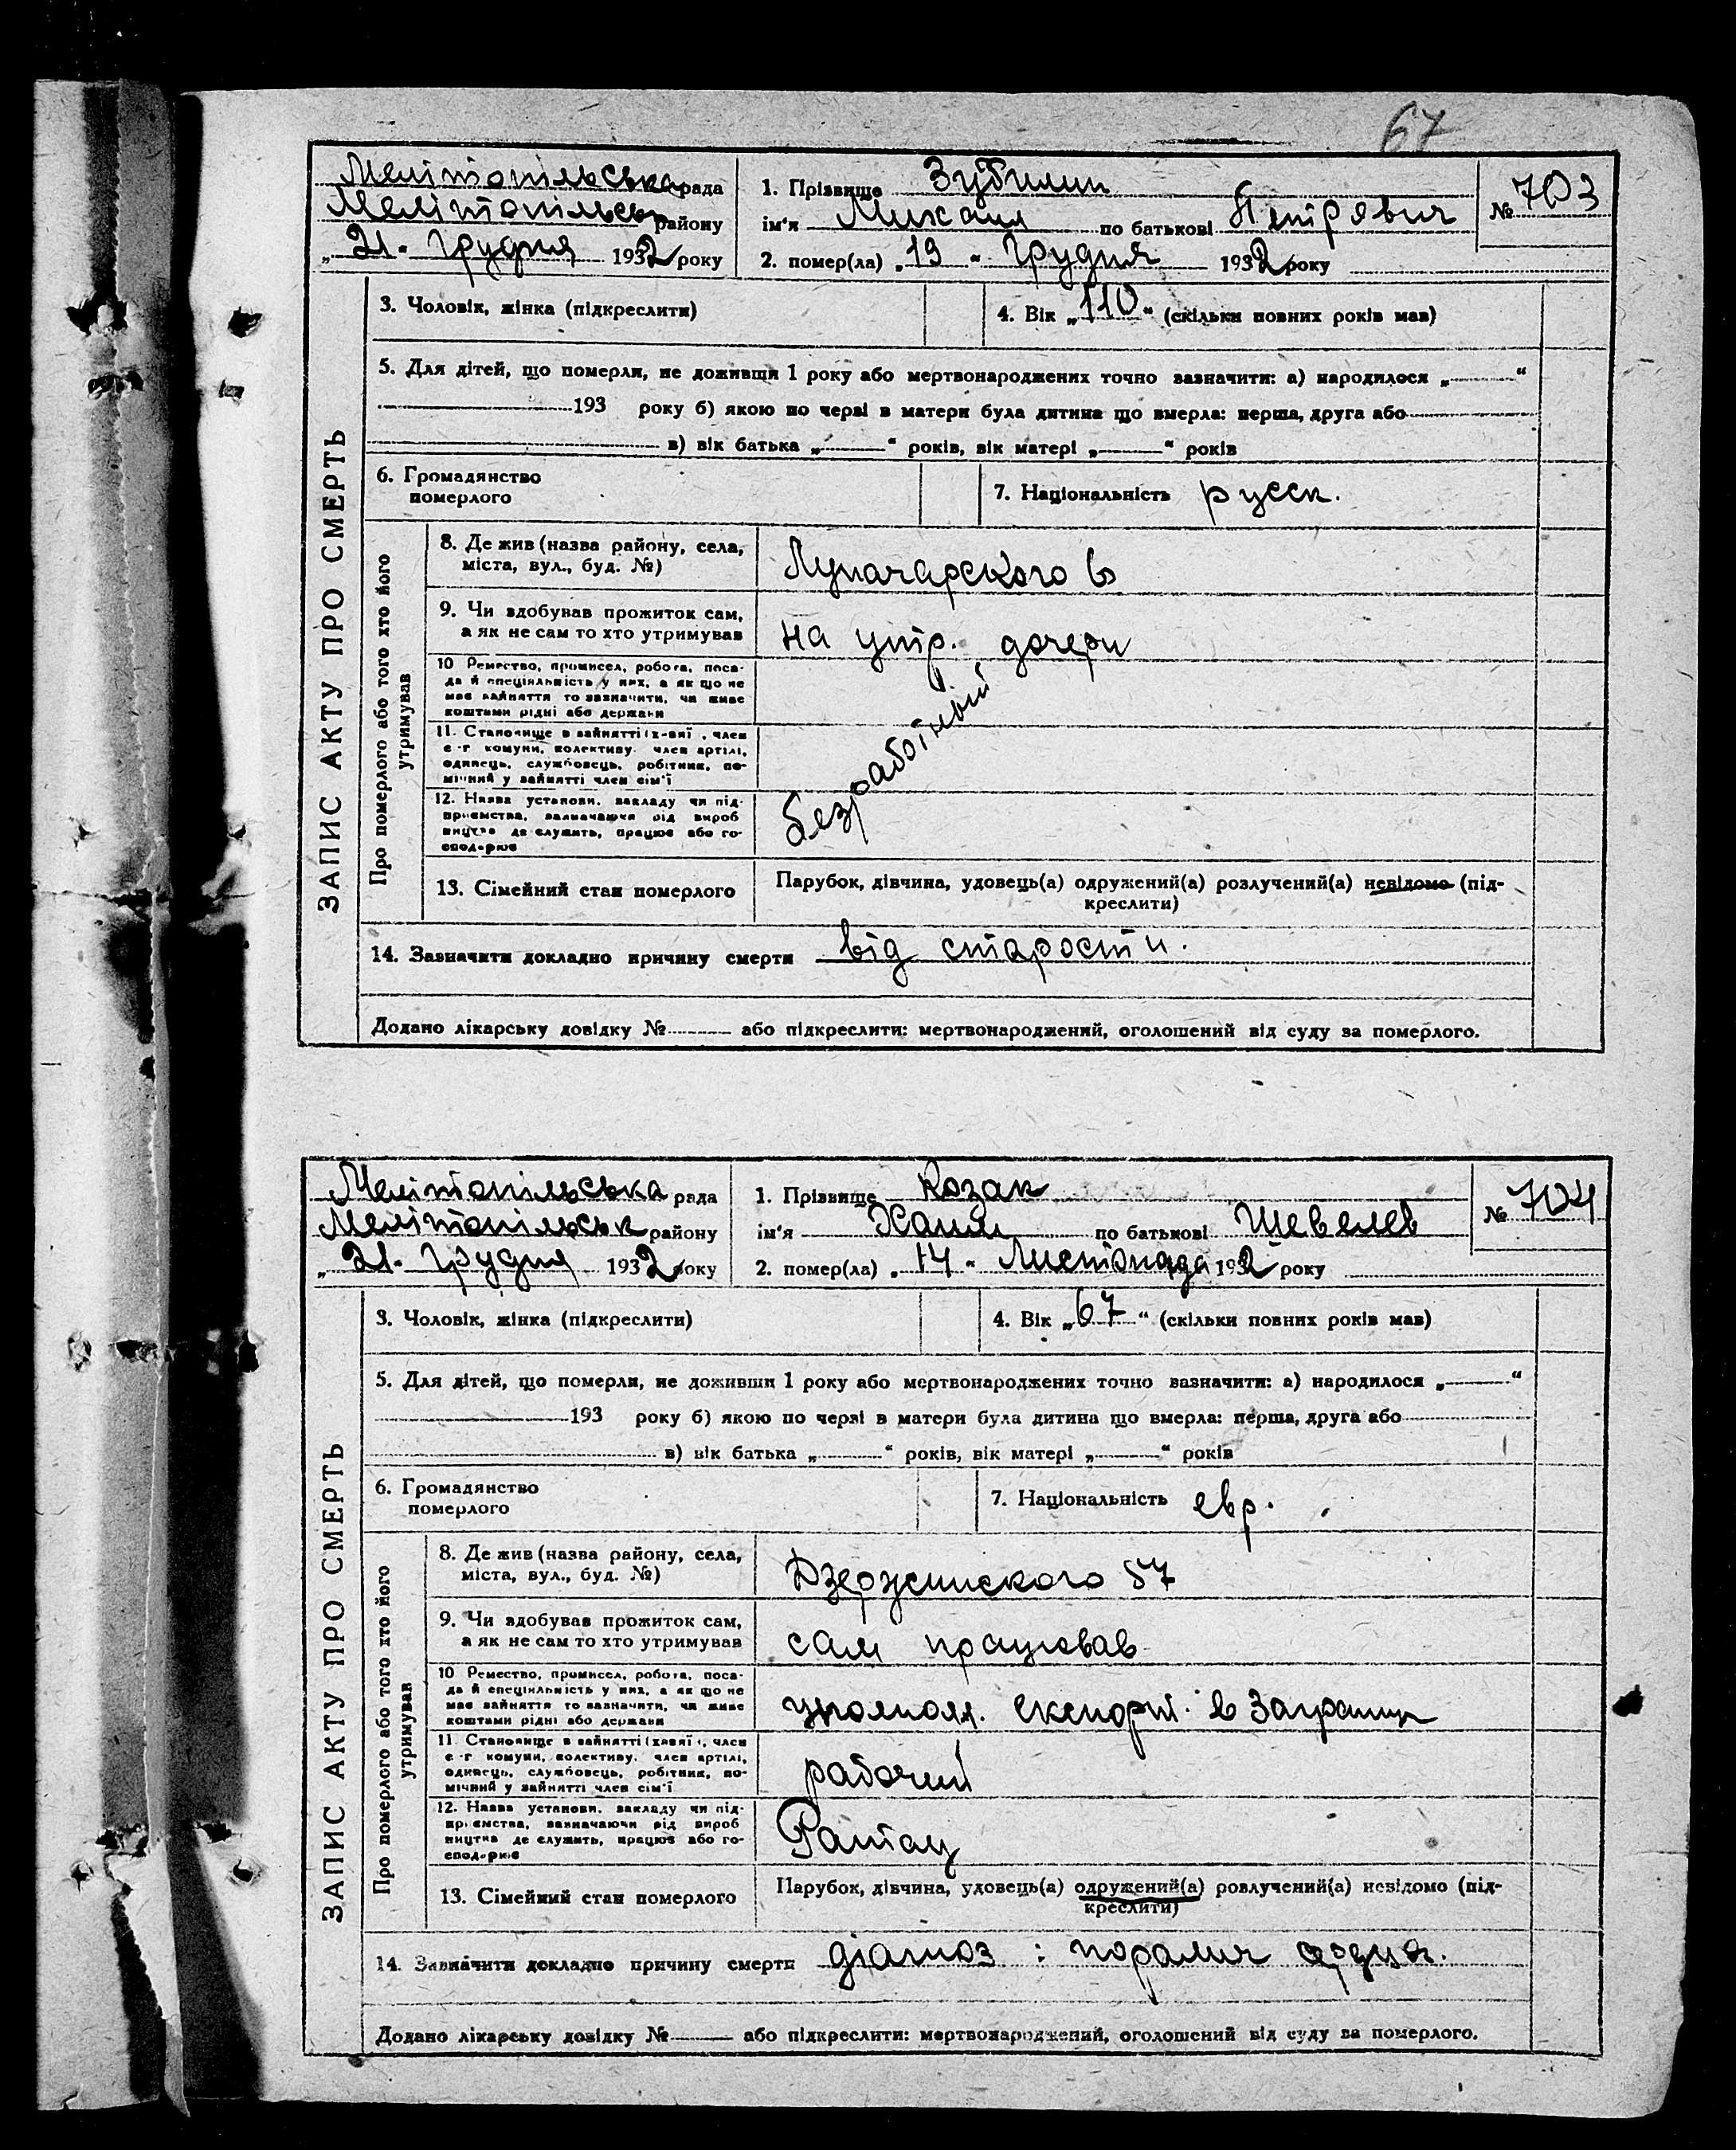 67
Мелітопільська рада
Мелітопільськ району
„ 21 " Грудня 1932 року
1. Прізвище Зубилин
ім'я Михаил по батькові Петрович
2. помер(ла) „ 19 " Грудня 1932 року
№ 703
ЗАПИС АКТУ ПРО СМЕРТЬ
3. Чоловік, жінка (підкреслити)
4. Вік „110" (скільки повних років мав)
5. Для дітей, що померли, не доживши 1 року або мертвонароджених точно зазначити: а) народилося „ "
193 року б) якою по черзі в матери була дитина що вмерла: перша, друга або
в) вік батька „ " років, вік матері „ " років
6. Громадянство
померлого
7. Національність русск.
Про померлого або того хто його
утримував
8. Де жив (назва району, села,
міста, вул., буд. №)
Луначарского 6
9. Чи здобував прожиток сам,
а як не сам то хто утримував
на утр. дочери
10 Ремество, промисел, робота, поса-
да й спеціяльність у них, а як що не
має зайняття то зазначити, чи живе
коштами рідні або держави
11. Становище в зайнятті (х-визі, член
с-г комуни, колективу, член артілі,
одинець, службовець, робітник, по-
мічний у зайнятті член сім'ї
12. Назва установи, закладу чи під-
приємства, зазначаючи рід вироб
ництва де служить, працює або го-
сподарює
безработный
13. Сімейний стан померлого
Парубок, дівчина, удовець(а) одружений(а) розлучений(а) невідомо (під-
креслити)
14. Зазначити докладно причину смерти від старости.
Додано лікарську довідку № або підкреслити: мертвонароджений, оголошений від суду за померлого.
Мелітопільська рада
Мелітопільськ району
„ 21 " Грудня 1932 року
1. Прізвище Козак
ім'я Хаим по батькові Шевелев
2. помер(ла) „ 14 " Листопада 1932 року
№ 704
ЗАПИС АКТУ ПРО СМЕРТЬ
3. Чоловік, жінка (підкреслити)
4. Вік „67" (скільки повних років мав)
5. Для дітей, що померли, не доживши 1 року або мертвонароджених точно зазначити: а) народилося „ "
193 року б) якою по черзі в матери була дитина що вмерла: перша, друга або
в) вік батька „ " років, вік матері „ " років
6. Громадянство
померлого
7. Національність евр.
Про померлого або того хто його
утримував
8. Де жив (назва району, села,
міста, вул., буд. №)
Дзержинского 57
9. Чи здобував прожиток сам,
а як не сам то хто утримував
сам працював
10 Ремество, промисел, робота, поса-
да й спеціяльність у них, а як що не
має зайняття то зазначити, чи живе
коштами рідні або держави
уполном. експорт. в Заграниц
11. Становище в зайнятті (х-визі, член
с-г комуни, колективу, член артілі,
одинець, службовець, робітник, по-
мічний у зайнятті член сім'ї
рабочий
12. Назва установи, закладу чи під-
приємства, зазначаючи рід вироб
ництва де служить, працює або го-
сподарює
Ратау
13. Сімейний стан померлого
Парубок, дівчина, удовець(а) одружений(а) розлучений(а) невідомо (під-
креслити)
14. Зазначити докладно причину смерти діагноз: поралич сердця.
Додано лікарську довідку № або підкреслити: мертвонароджений, оголошений від суду за померлого.